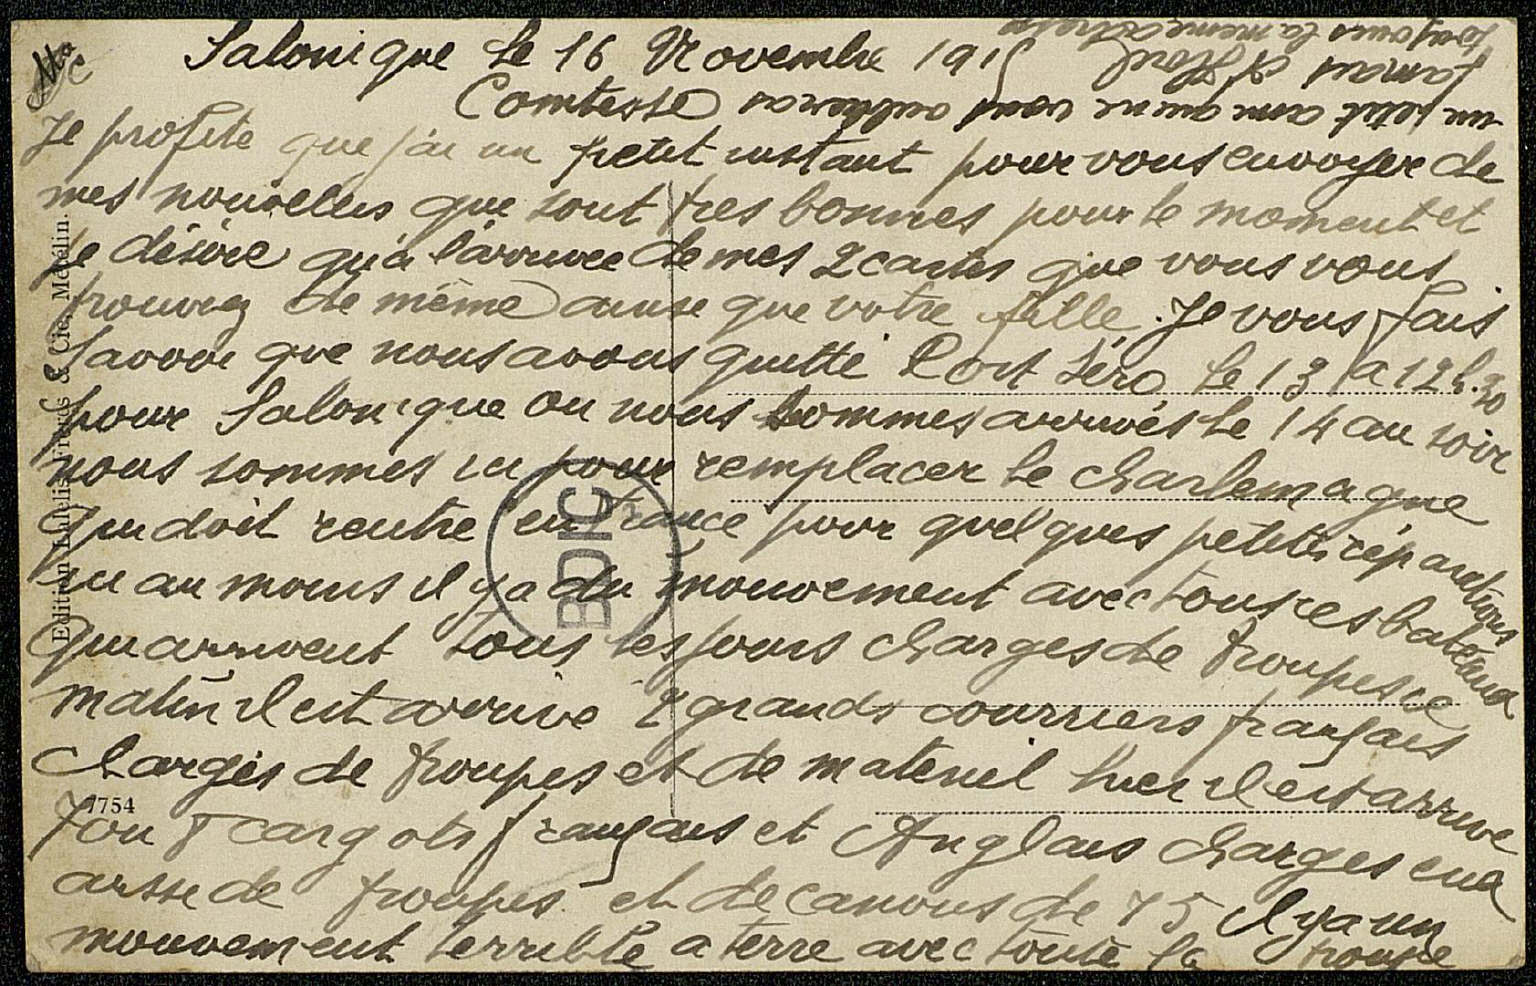 Salonique Le 16 Novembre 1915
Comtesse
Je profite que j'ai un petit instant pour vous envoyer de
mes nouvelles que sont tres bonnes pour le moment et
je désire qu'a l'arrivee de mes 2 cartes que vous vous
trouvez de même ainse que votre fille. Je vous fais
savoir que nous avons quitté Port Léro le 13 a 12 h. 30
pour Salonique ou nous sommes arrivés le 14 au soir
nous sommes ici pour remplacer le Charlemagne
qui doit rentre en France pour quelques petites réparations
ici au moins il y a du mouvement avec tous ces bateaux
qui arrivent tous les jours charges de troupes ce
matin il est arrivé 2 grands courriers français
chargés de troupes et de matériel hier il est arrivé
7 ou 8 cargots français et Anglais charges eux
aussi de troupes et de canons de 75 il y a un
mouvement terrible a terre avec toute la troupe
un petit ami qui ne vous oublieras
jamais
toujours la meme adresse
Edition Lufelis Frères & Cie, Metelin.
7754
BDIC